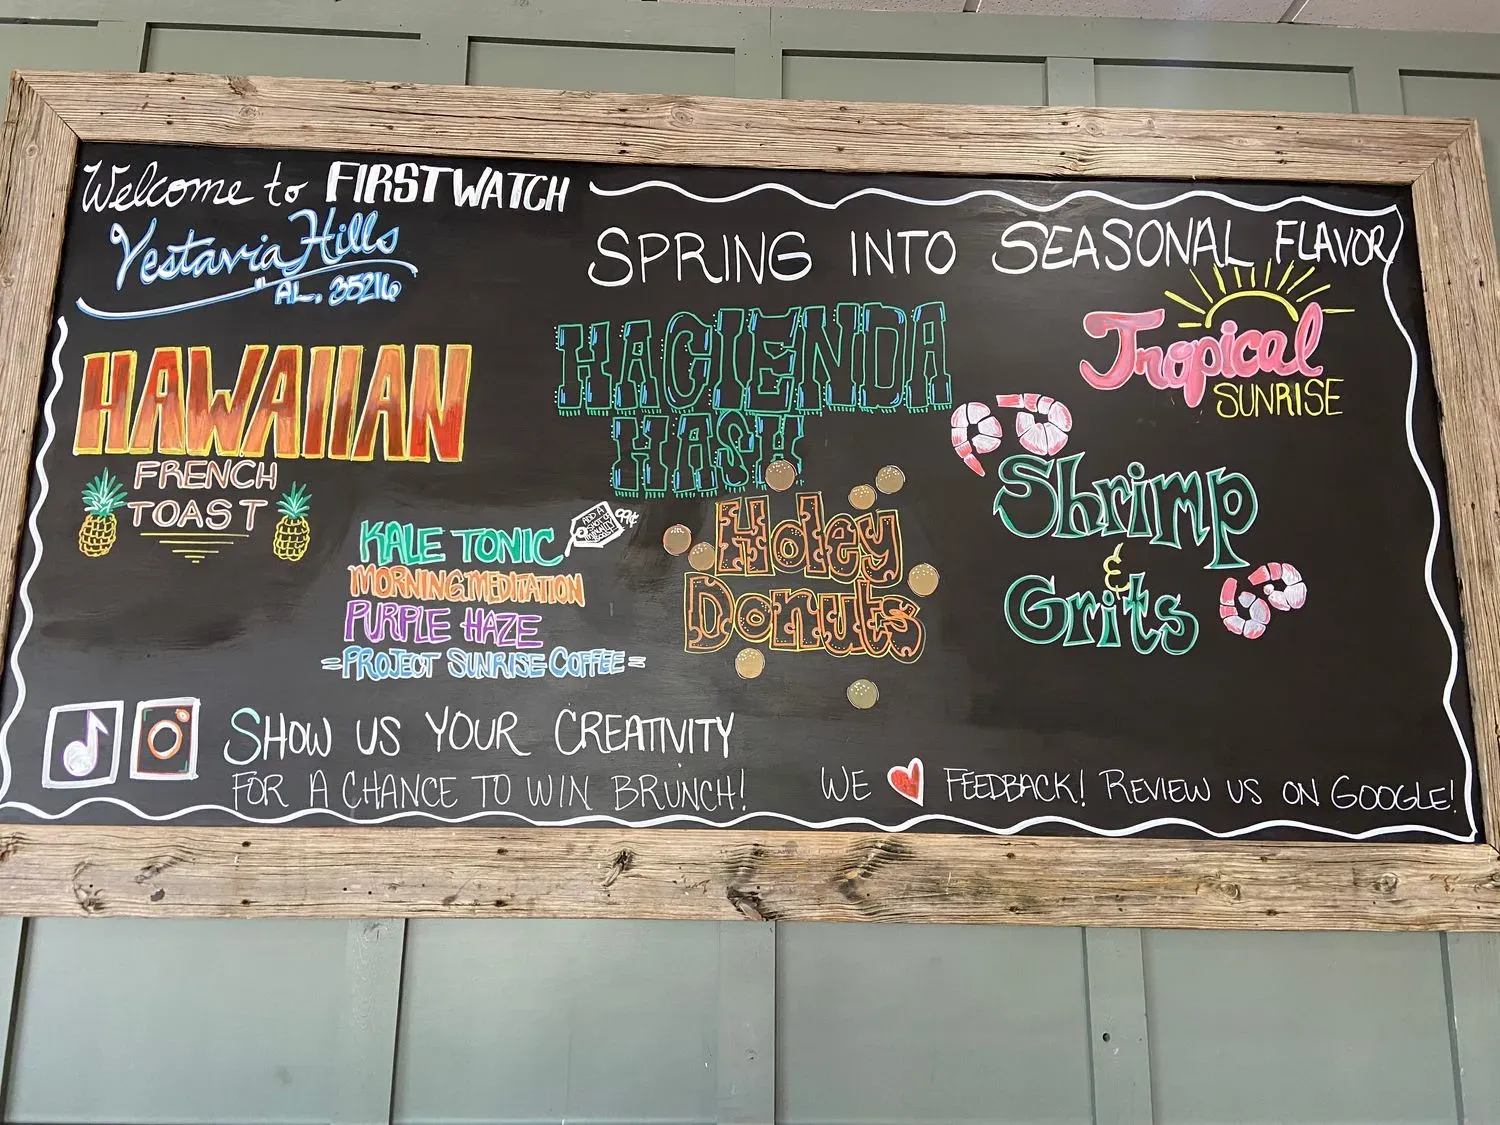 Welcome to FIRSTWATCH
Vestavia Hills
AL. 35216
SPRING INTO SEASONAL FLAVOR
HAWAIIAN
FRENCH
TOAST
HACIENDA
HASH
Tropical
SUNRISE
Shrimp
&
Grits
KALE TONIC
ADD A
SHOT OF
99¢
MORNING MEDITATION
PURPLE HAZE
=PROJECT SUNRISE COFFEE=
Holey
Donuts
SHOW US YOUR CREATIVITY
FOR A CHANCE TO WIN BRUNCH!
WE ❤ FEEDBACK! REVIEW US ON GOOGLE!